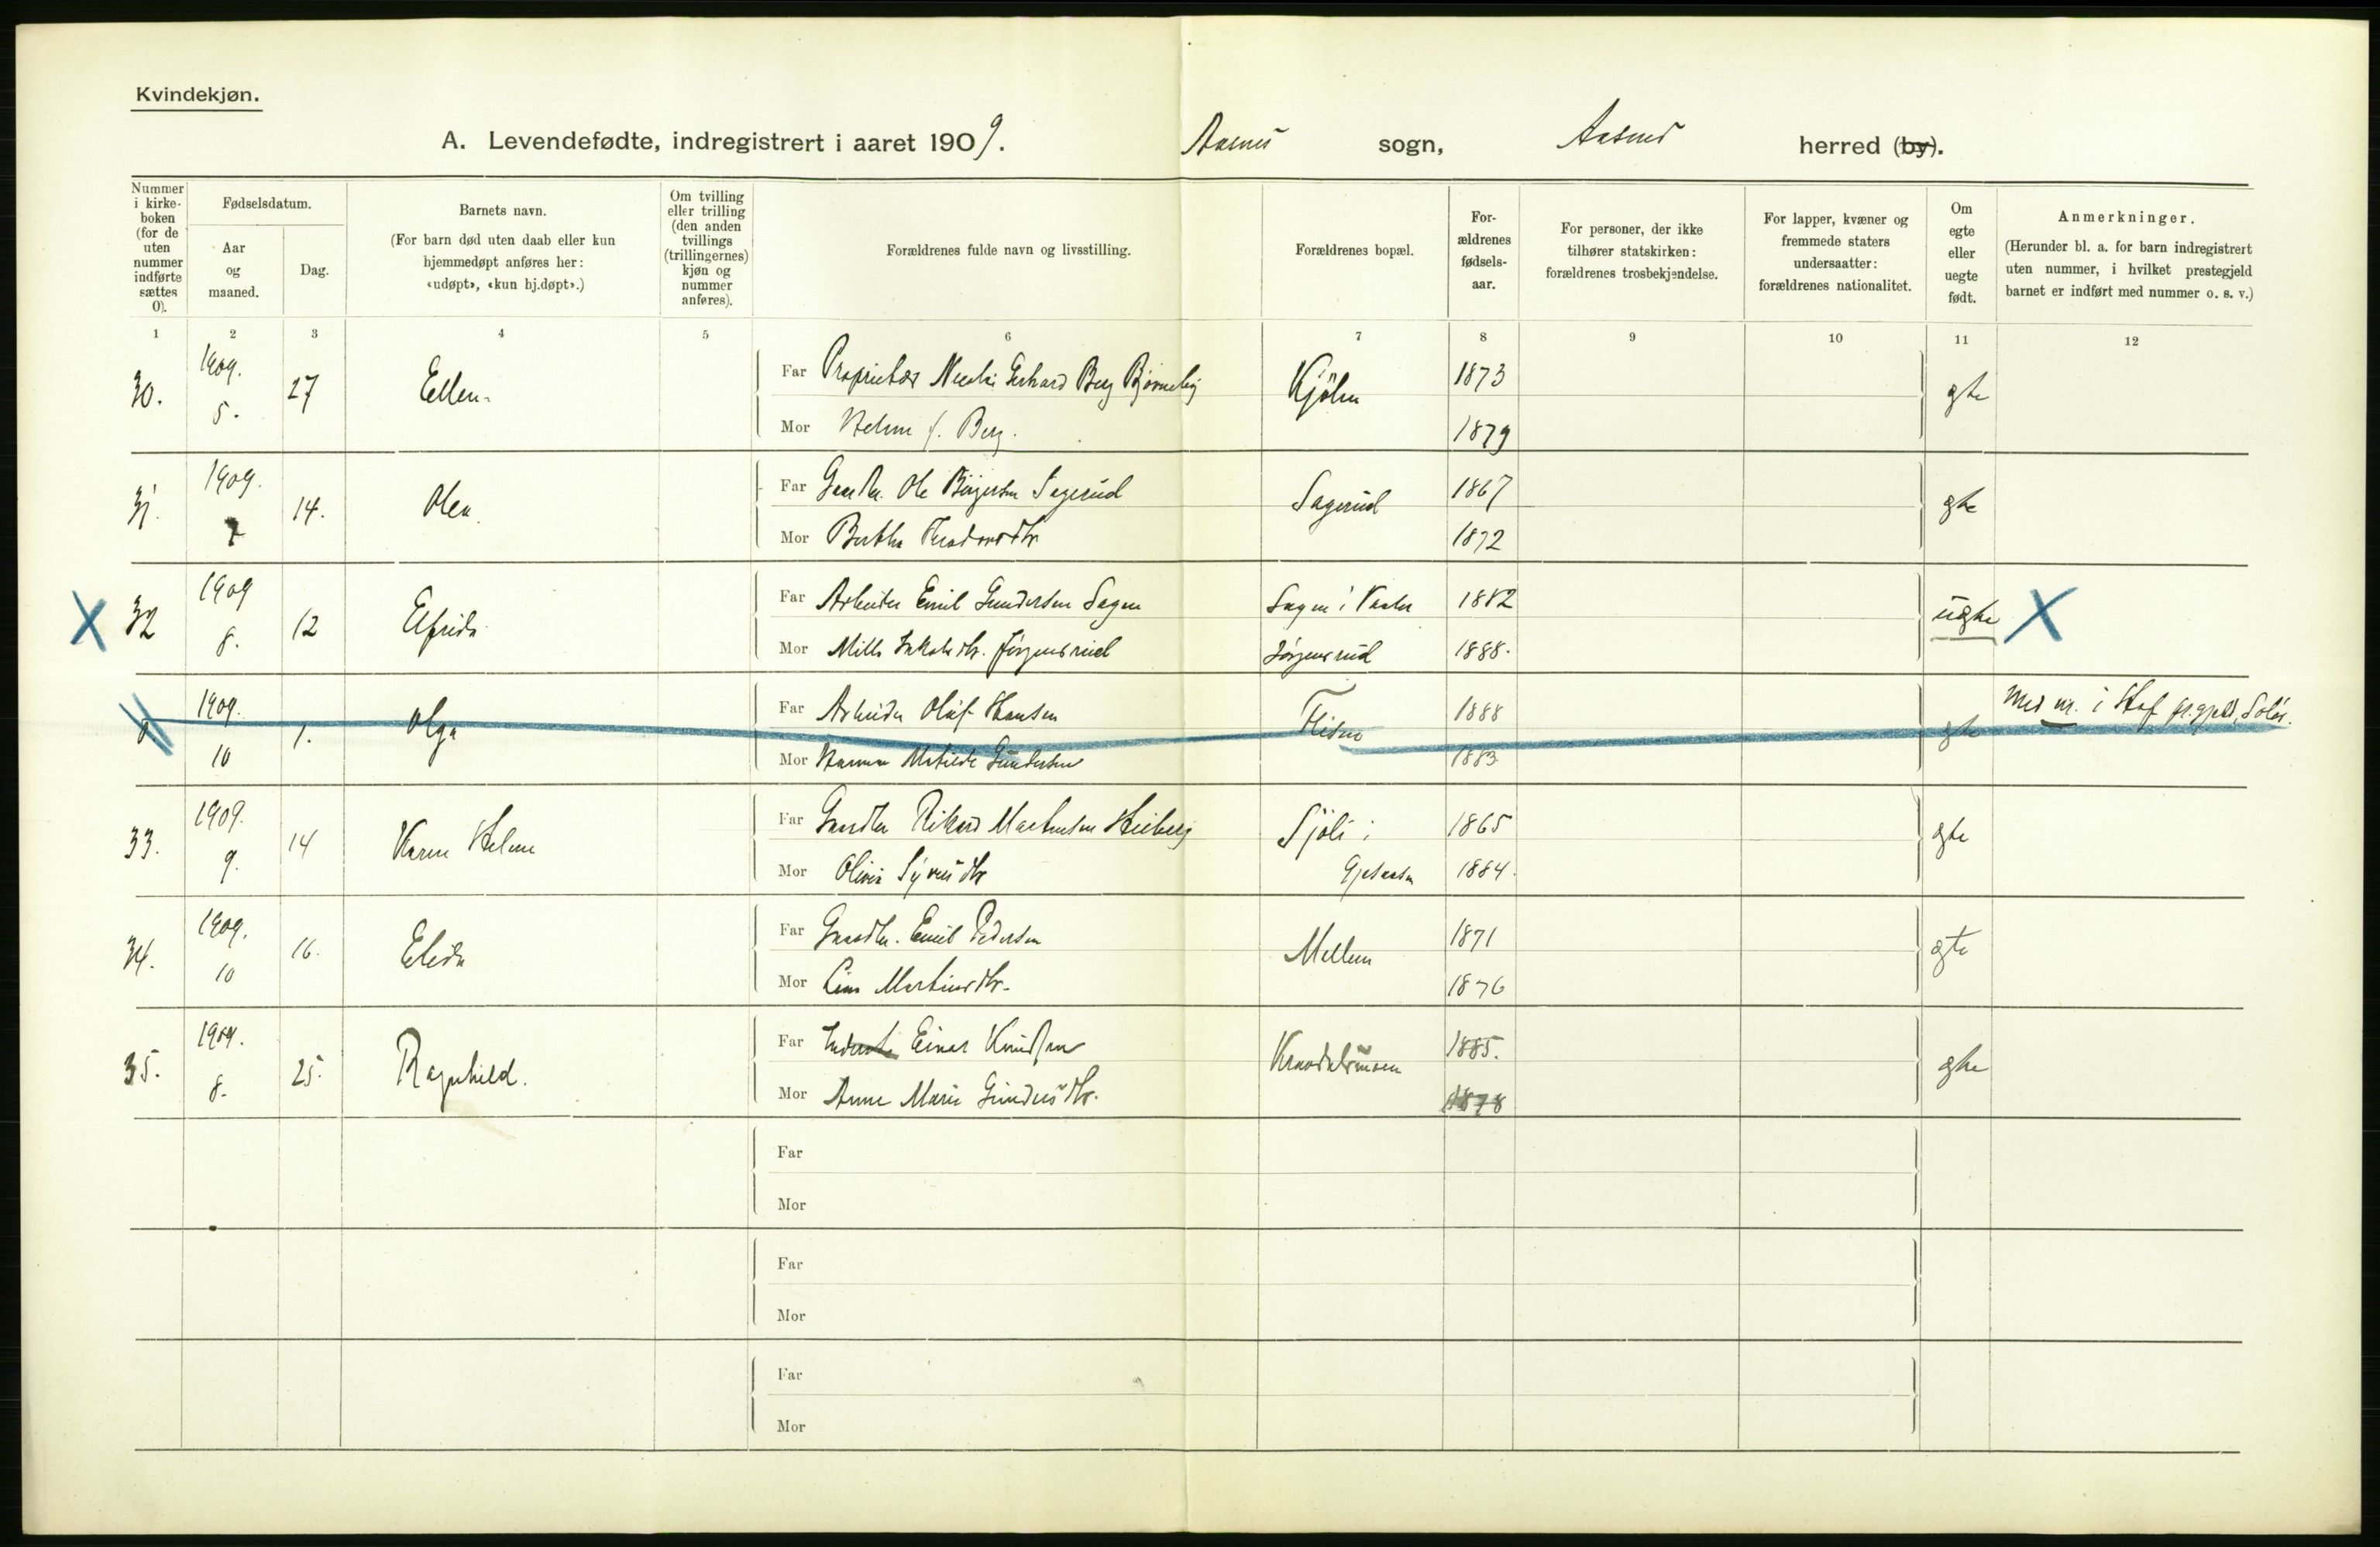 Kvindekjøn.
A. Levendefødte, indregistrert i aaret 1909. Aasnes sogn, Aasnes herred (by).
Nummer i kirke-boken (for de uten nummer indførte sættes 0).
Fødselsdatum.
Aar og maaned.
Dag.
Barnets navn.
(For barn død uten daab eller kun hjemmedøpt anføres her: «udøpt», «kun hj.døpt».)
Om tvilling eller trilling (den anden tvillings (trillingernes) kjøn og nummer anføres).
Forældrenes fulde navn og livsstilling.
Forældrenes bopæl.
For-ældrenes fødsels-aar.
For personer, der ikke tilhører statskirken: forældrenes trosbekjendelse.
For lapper, kvæner og fremmede staters undersaatter: forældrenes nationalitet.
Om egte eller uegte født.
Anmerkninger.
(Herunder bl. a. for barn indregistrert uten nummer, i hvilket prestegjeld barnet er indført med nummer o. s. v.)
1 2 3 4 5 6 7 8 9 10 11 12
30. 1909. 5. 27 Ellen
Far Proprietær Nicolai Gerhard Berg Bjørneby Kjölen 1873 gte
Mor Helene f. Berg. 1879
31. 1909. 7 14. Olea
Far Gaardbr. Ole Børgersen Sagerud Sagerud 1867 gte
Mor Berthe 1872
X 32 1909 8. 12 Elfrida
Far Arbeider Emil Gundersen Sagen Sagen i Vaaler 1882 ugte X
Mor Milla Jakobsdtr. Jørgensrud Jørgensrud 1888.
0 1909. 10 1. Olga
Far Arbeider Oluf Hansen Flisen 1888 gte Med nr. i Hof pr.gjeld, Solør.
Mor Hanna Matilde Gundersen 1883
33. 1909. 9. 14 Karen Helene
Far Gaardbr Rikard Martinsen Heiberg Sjöli i 1865 gte
Mor Olivia Syversdtr Gjesaasen 1884.
34. 1909. 10 16. Elida
Far Gaardbr. Emil Pedersen Mellem 1871 gte
Mor Lina Martinsdtr. 1876
35. 1909. 8. 25. Ragnhild.
Far Einar Knudsen 1885. gte
Mor Anne Marie Gundersdtr. 1878
Far
Mor
Far
Mor
Far
Mor